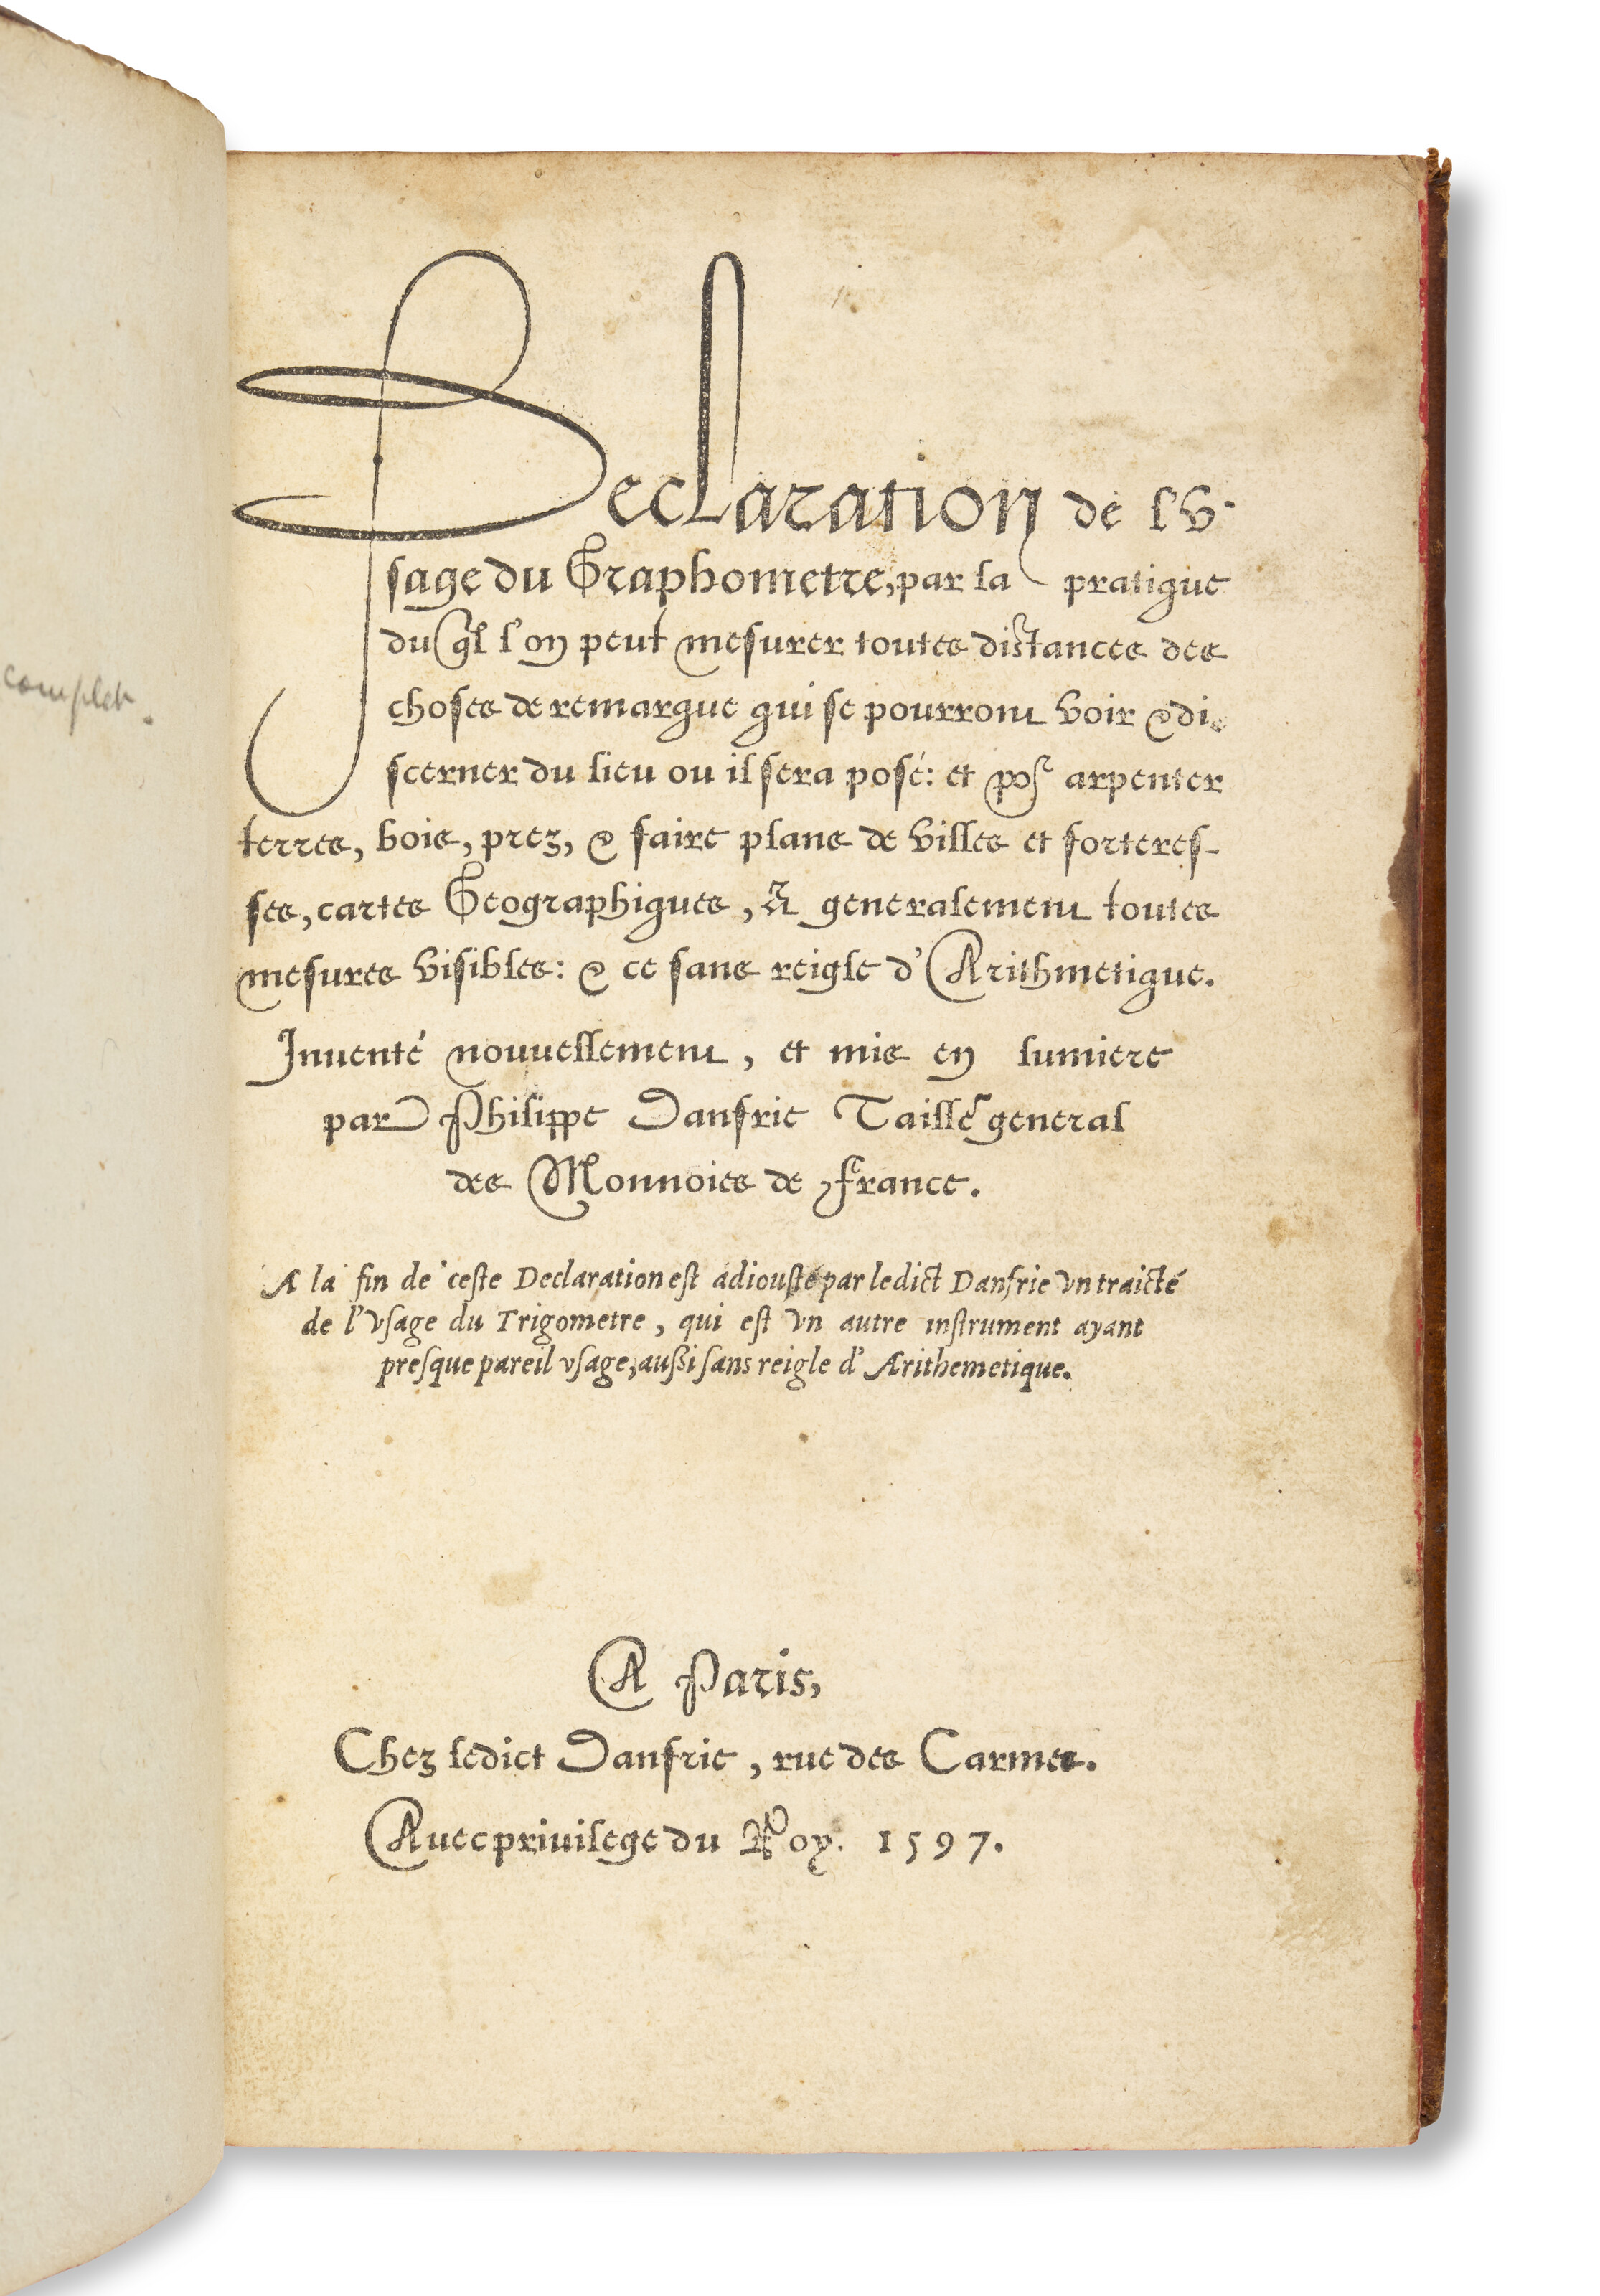 complet.
Declaration de l'V-
sage du Graphometre, par la pratique
du ql l'on peut mesurer toutes distances des
choses de remarque qui se pourront voir & di-
scerner du lieu ou il sera posé: et por arpenter
terres, bois, prez, & faire plans de villes et forteres-
ses, cartes Geographiques, & generalement toutes
mesures visibles: & ce sans reigle d'Arithmetique.
Inuenté nouuellement, et mis en lumiere
par Philippe Danfrie Tailler general
des Monnoies de France.
A la fin de ceste Declaration est adiousté par ledict Danfrie vn traicté
de l'vsage du Trigometre, qui est vn autre instrument ayant
presque pareil vsage, außi sans reigle d'Arithemetique.
A Paris,
Chez ledict Danfrie, rue des Carmes.
Auec priuilege du Roy. 1597.